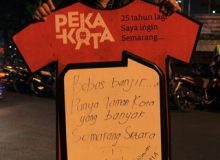 PEKA
KOTA
25 tahun lagi
Saya ingin
Semarang....
Bebas banjir...
Punya Taman Kota
yang banyak
Semarang Setara